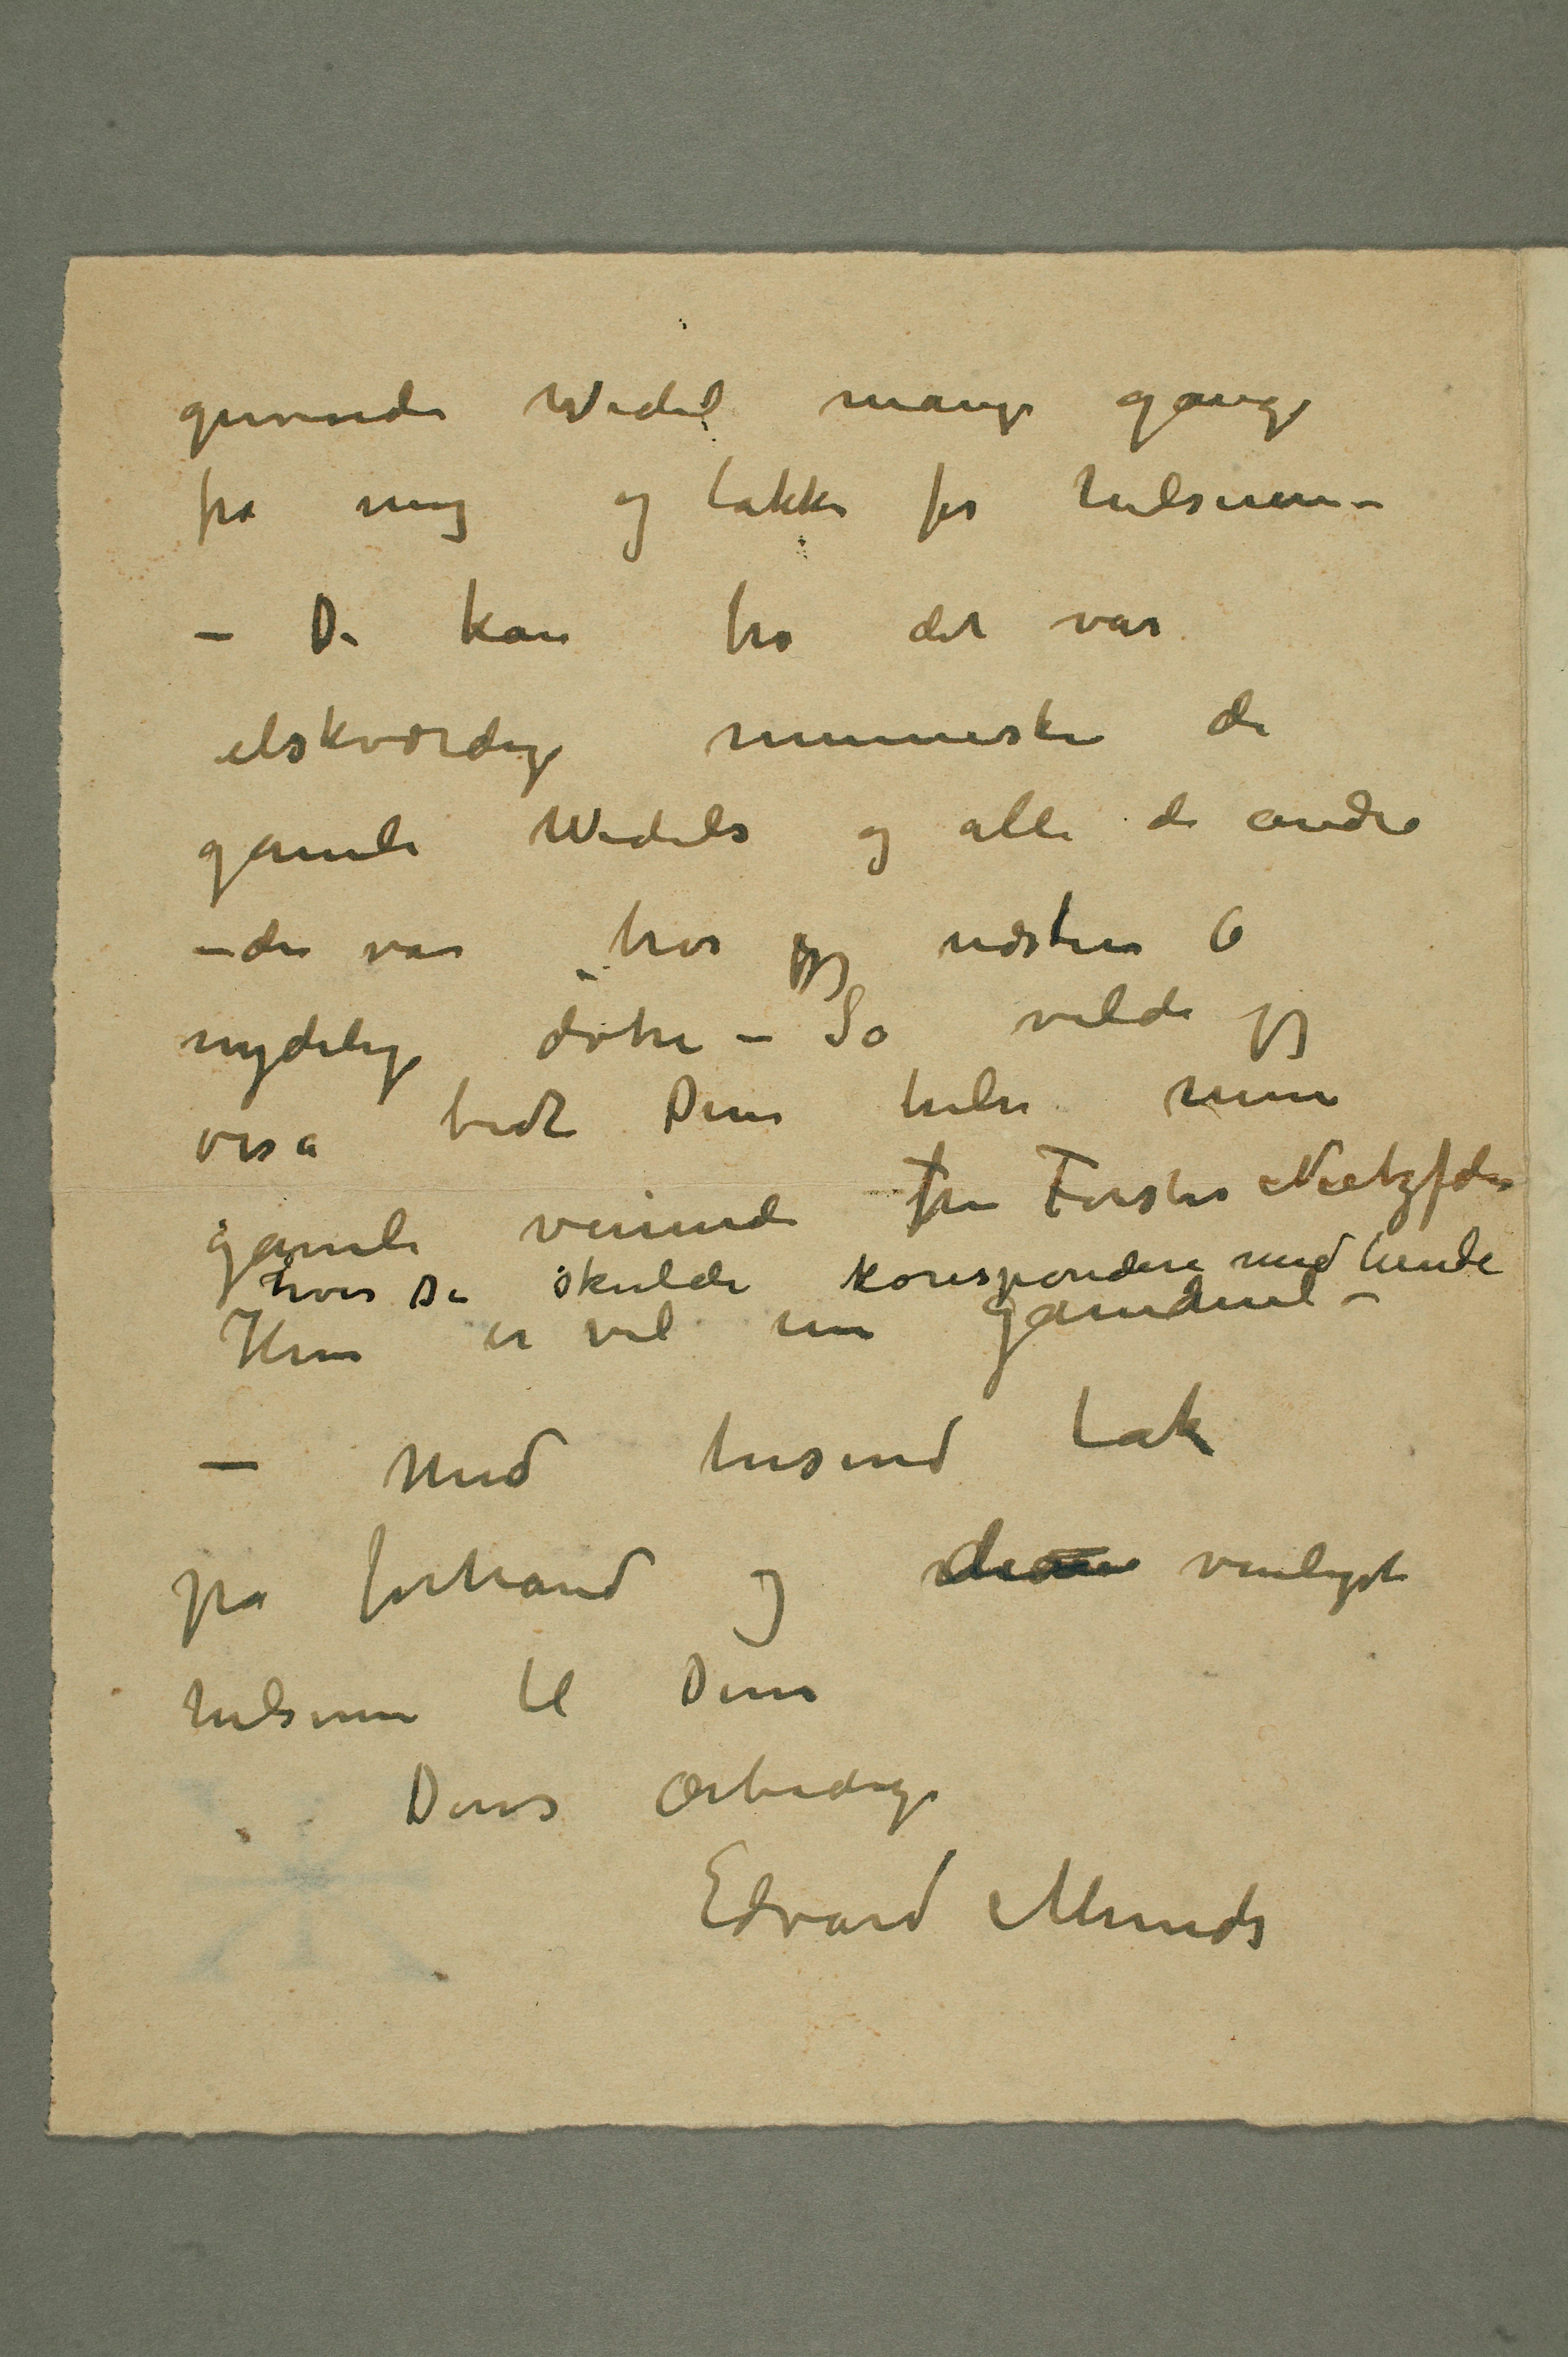 grevinde Wedel mange gange
fra mig og takke for hilsenen –
– De kan tro det var
elskværdige mennesker de
gamle Wedels og alle de andre
– der var tror jeg næsten 6
nydelige døtre – Så vilde jeg
også bedt Dem hilse min
gamle veninde Fru Førster Nietzsche
hvis De skulde korrespondere med hende
Hun er vel nu gammel –
– Med tusind tak
på forhånd og venligste
hilsener til Dem
Deres ærbødige
Edvard Munch